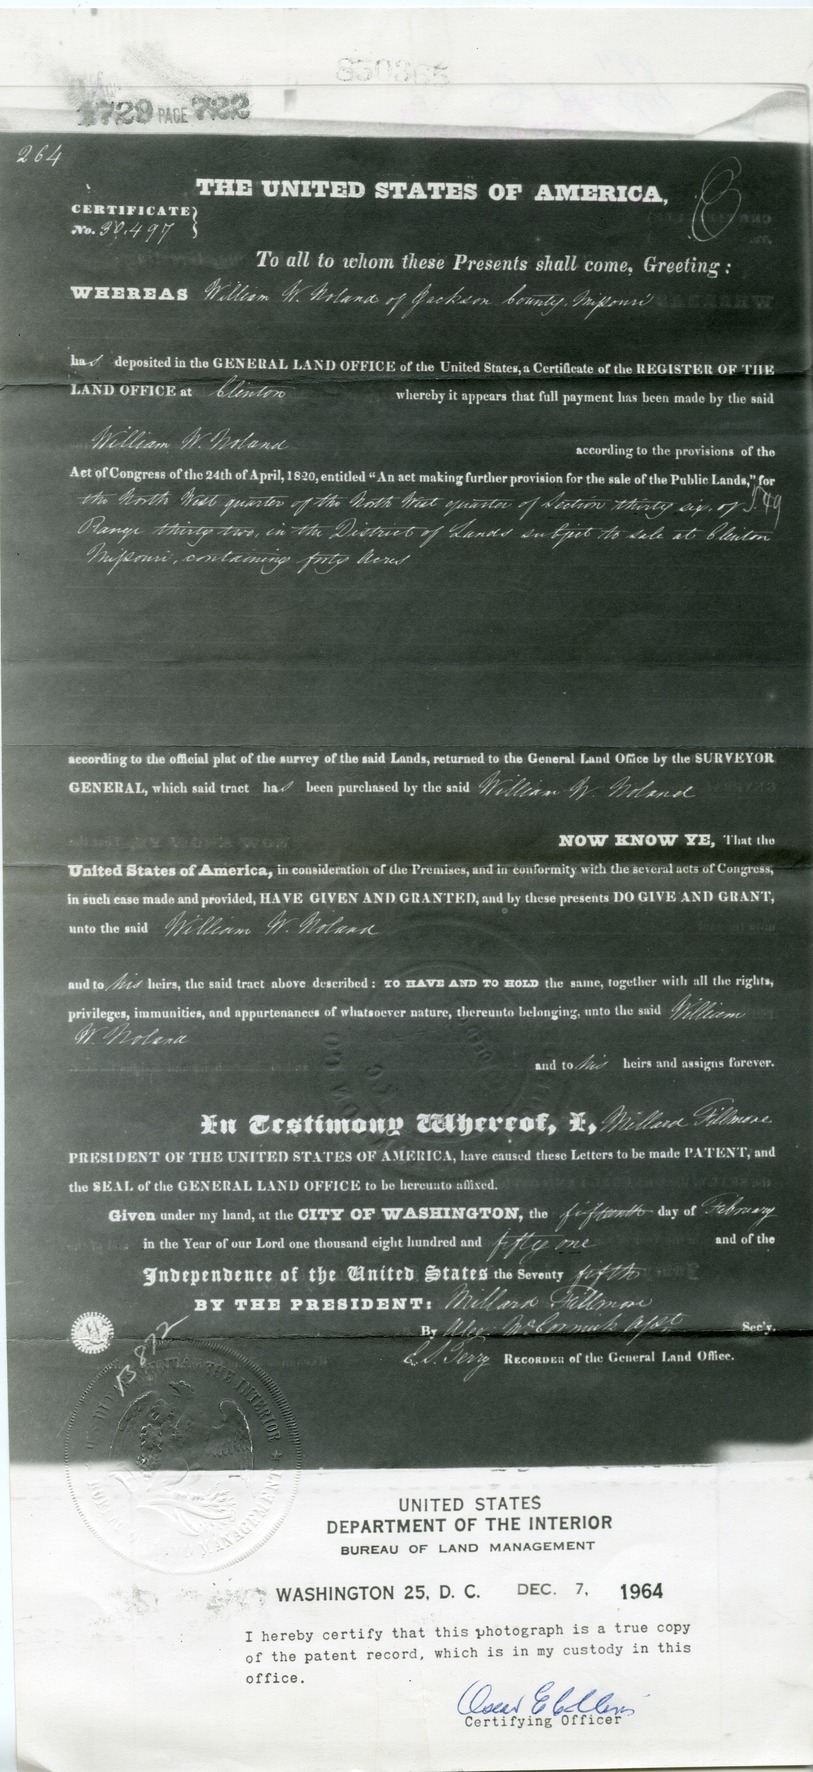 850385
1729 PAGE 722
264
THE UNITED STATES OF AMERICA,
CERTIFICATE
No. 30.497
To all to whom these Presents shall come, Greeting:
WHEREAS William W. Noland of Jackson County, Missouri
has deposited in the GENERAL LAND OFFICE of the United States, a Certificate of the REGISTER OF THE
LAND OFFICE at Clinton whereby it appears that full payment has been made by the said
William W. Noland according to the provisions of the
Act of Congress of the 24th of April, 1820, entitled “An act making further provision for the sale of the Public Lands,” for
the North West quarter of the North West quarter of Section thirty six, of T. 49
Range thirty two, in the District of Lands subject to sale at Clinton
Missouri, containing forty Acres
according to the official plat of the survey of the said Lands, returned to the General Land Office by the SURVEYOR
GENERAL, which said tract has been purchased by the said William W. Noland
NOW KNOW YE, That the
United States of America, in consideration of the Premises, and in conformity with the several acts of Congress,
in such case made and provided, HAVE GIVEN AND GRANTED, and by these presents DO GIVE AND GRANT,
unto the said William W. Noland
and to his heirs, the said tract above described: TO HAVE AND TO HOLD the same, together with all the rights,
privileges, immunities, and appurtenances of whatsoever nature, thereunto belonging, unto the said William
W. Noland
and to his heirs and assigns forever.
In Testimony Whereof, I, Millard Fillmore
PRESIDENT OF THE UNITED STATES OF AMERICA, have caused these Letters to be made PATENT, and
the SEAL of the GENERAL LAND OFFICE to be hereunto affixed.
Given under my hand, at the CITY OF WASHINGTON, the fifteenth day of February
in the Year of our Lord one thousand eight hundred and fifty one and of the
Independence of the United States the Seventy fifth
BY THE PRESIDENT: Millard Fillmore
By Alex McCormick Asst Sec'y.
E. S. Terry RECORDER of the General Land Office.
13872
UNITED STATES
DEPARTMENT OF THE INTERIOR
BUREAU OF LAND MANAGEMENT
WASHINGTON 25, D. C. DEC. 7, 1964
I hereby certify that this photograph is a true copy
of the patent record, which is in my custody in this
office.
Certifying Officer